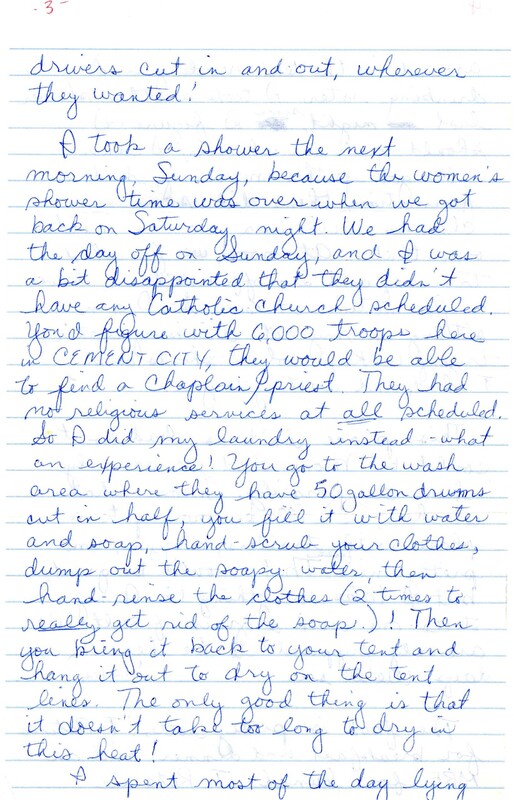 -3-
drivers cut in and out, wherever
they wanted!
I took a shower the next
morning, Sunday, because the women's
shower time was over when we got
back on Saturday night. We had
the day off on Sunday, and I was
a bit disappointed that they didn't
have any Catholic church scheduled.
You'd figure with 6,000 troops here
in CEMENT CITY, they would be able
to find a Chaplain/priest. They had
no religious services at all scheduled.
So I did my laundry instead - what
an experience! You go to the wash
area where they have 50 gallon drums
cut in half, you fill it with water
and soap, hand-scrub your clothes,
dump out the soapy water, then
hand-rinse the clothes (2 times to
really get rid of the soap.)! Then
you bring it back to your tent and
hang it out to dry on the tent
lines. The only good thing is that
it doesn't take too long to dry in
this heat!
I spent most of the day lying